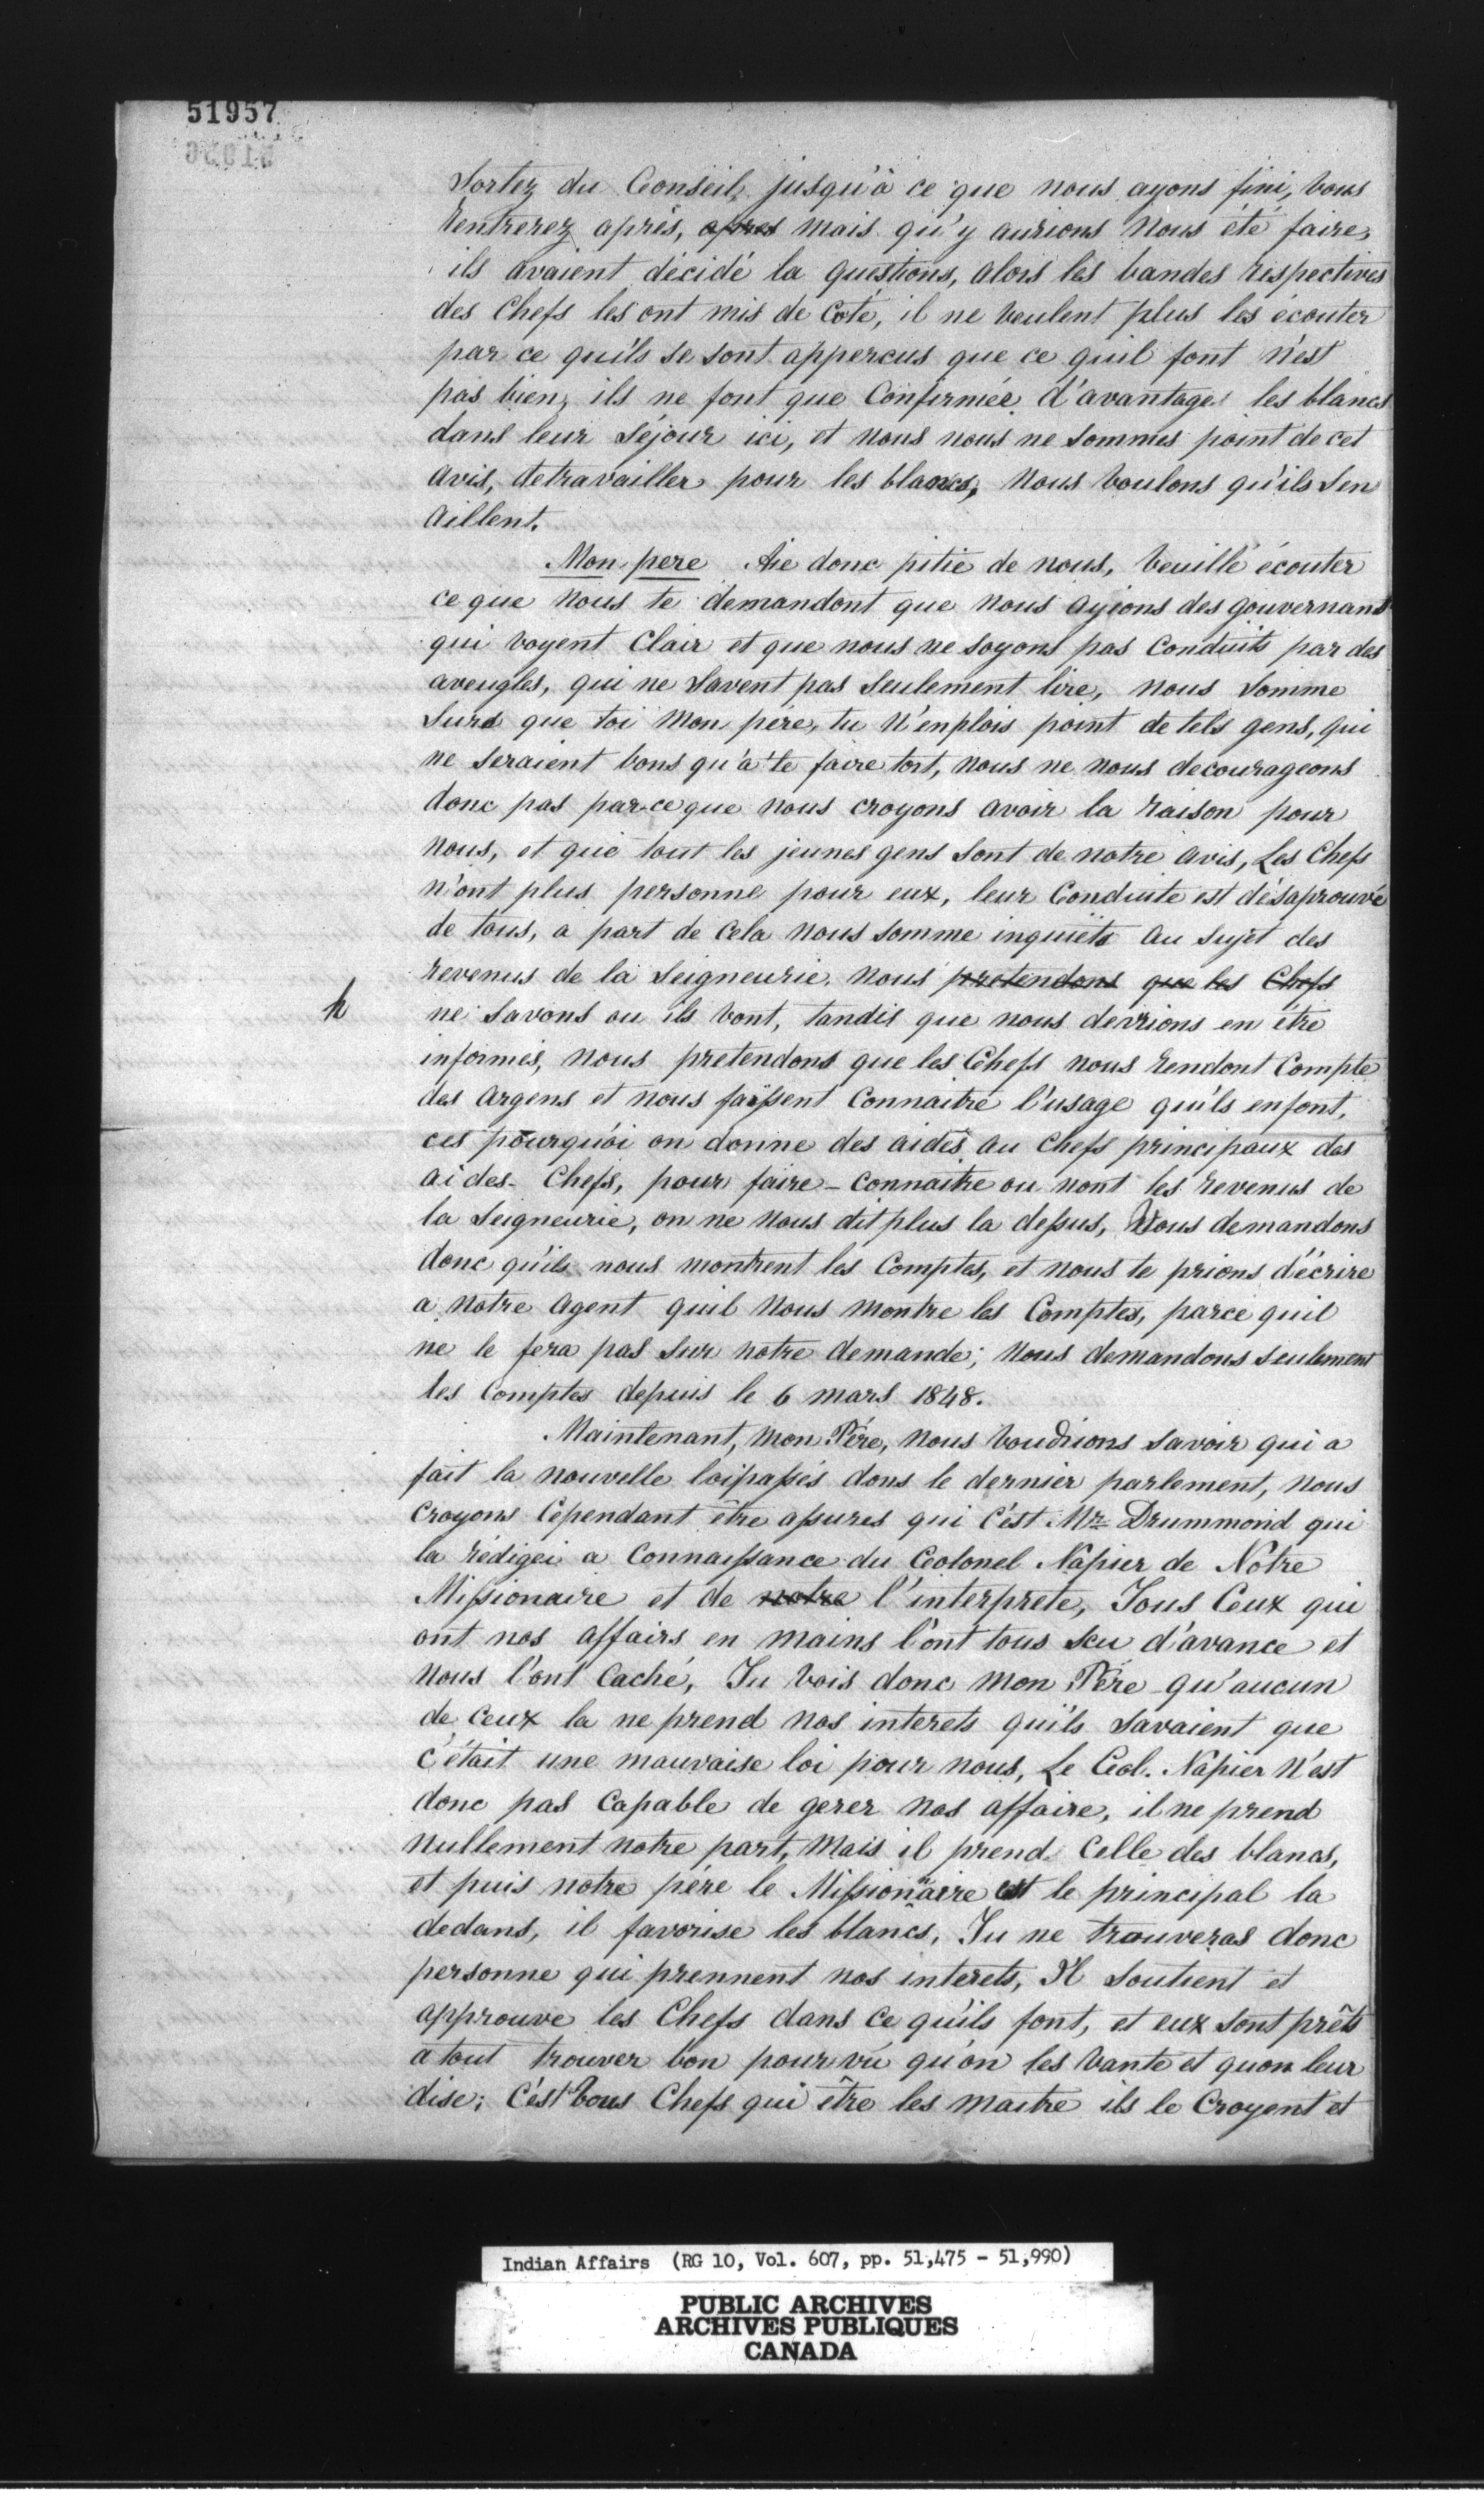 51957
Sortez du Conseil, jusqu'à ce que nous ayons fini, vous
rentrerez après, apres mais qu'y aurions nous été faire,
ils avaient décidé la questions, alors les bandes respectives
des Chefs les ont mis de Coté, il ne veulent plus les écouter
par ce qu'ils se sont appercus que ce quil font n'est
pas bien, ils ne font que Confirmée d'avantage les blancs
dans leur séjour ici, et nous nous ne sommes point de cet
avis, detravailler pour les blancs, Nous voulons qu'ils s'en
aillent.
Mon pere Aie donc pitie de nous, veuille écouter
ce que nous te demandont que nous ayions des gouvernans
qui voyent Clair et que nous ne soyons pas Conduits par des
aveugles, qui ne savent pas seulement lire, nous somme
surs que toi Mon père, tu n'enplois point de tels gens, qui
ne seraient bons qu'à te faire tort, nous ne nous decourageons
donc pas par-ce que nous croyons avoir la raison pour
nous, et que tout les jeunes gens sont de notre avis, Les Chefs
n'ont plus personne pour eux, leur Conduite est désaprouvé
de tous, a part de Cela nous somme inquiets au sujet des
revenus de la Seigneurie, nous pretendons que les Chefs
h ne savons ou ils vont, tandis que nous devrions en être
informés, nous pretendons que les Chefs nous rendont Compte
des Argens et nous faissent Connaitre l'usage qu'ils enfont,
ces pourquoi on donne des aides au Chefs principaux des
aides-Chefs, pour faire-connaitre ou vont les revenus de
la Seigneurie, on ne nous dit plus la dessus, Nous demandons
donc qu'ils nous montrent les Comptes, et nous te prions d'écrire
a notre Agent quil nous montre les Comptes, parce quil
ne le fera pas sur notre demande; Nous demandons seulement
les Comptes depuis le 6 mars 1848.
Maintenant, Mon Père, nous voudrions savoir qui a
fait la nouvelle loi passés dans le dernier parlement, nous
croyons Cependant être assures qui c'est Mr. Drummond qui
la rédigei a Connaissance du Colonel Napier de Notre
Missionaire et de notre l'interprete, Tous Ceux qui
ont nos affairs en mains l'ont tous scu d'avance et
nous l'ont Caché, Tu vois donc Mon Père qu'aucun
de ceux la ne prend nos interets qu'ils savaient que
c'était une mauvaise loi pour nous, Le Col. Napier n'est
donc pas Capable de gerer nos affaire, il ne prend
nullement notre part, Mais il prend Celle des blancs,
et puis notre père le Missionaire est le principal la
dedans, il favorise les blancs, Tu ne trouveras donc
personne qui prennent nos interets, Il soutient et
approuve les Chefs dans ce qu'ils font, et eux sont prêts
a tout trouver bon pourvu qu'on les vante et quon leur
dise; C'est vous Chefs qui être les maitre ils le Croyent et
Indian Affairs (RG 10, Vol. 607, pp. 51,475 - 51,990)
PUBLIC ARCHIVES
ARCHIVES PUBLIQUES
CANADA